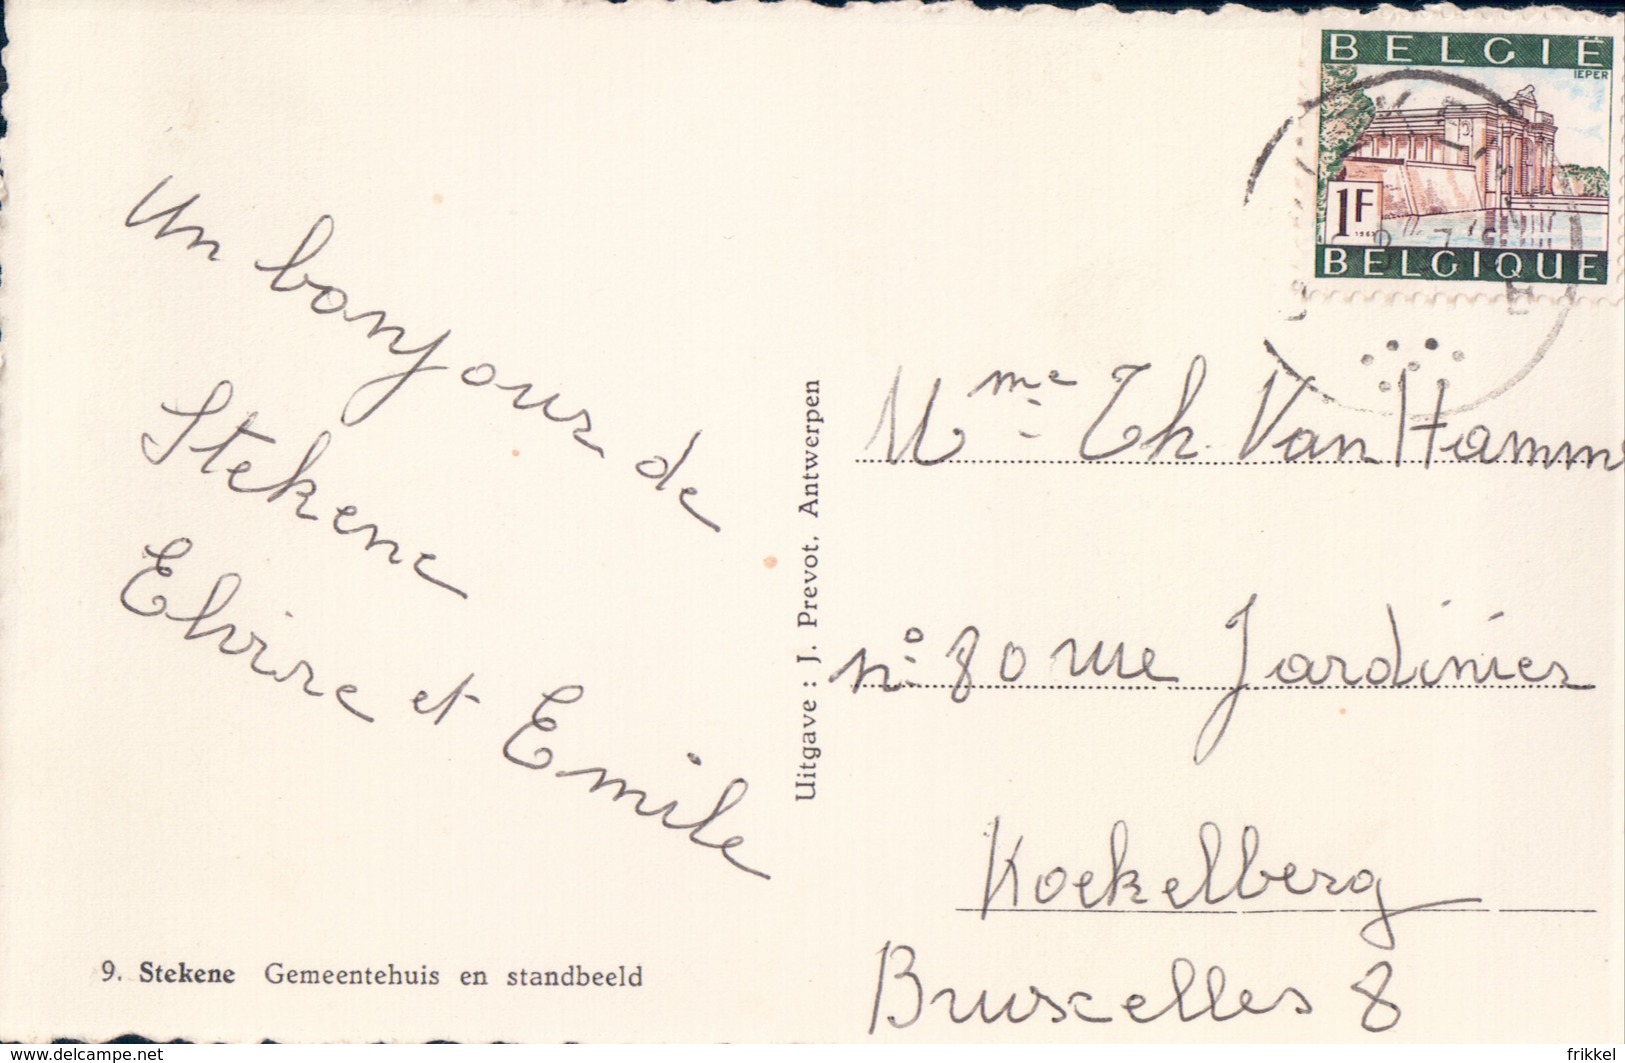 BELGIË
IEPER
1F
BELGIQUE
Un bonjour de
Stekene
Elvire et Emile
Uitgave : J. Prevot, Antwerpen
Mme Th. Van Hamm
n° 80 rue Jardinier
Koekelberg
Bruxelles 8
9. Stekene Gemeentehuis en standbeeld
www.delcampe.net
frikkel